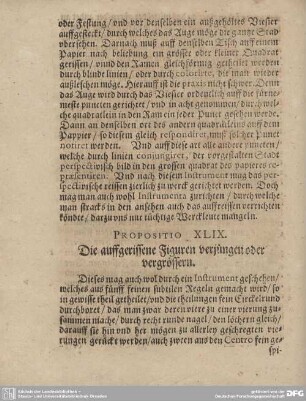 oder Festung/ vnd vor denselben ein außgehöltes Viesier
auffgesteckt/ durch welches das Auge möge die gantze Stad
vbersehen. Darnach muß auff denselben Tisch auff einem
Papier nach beliebung ein grösser oder kleiner Quadrat
gerissen/ vnnd den Ramen gleichförmig getheilet werden
durch blinde linien/ oder durch die man wieder
außleschen möge. Hierauff ist die praxis nicht schwer: Denn
das Auge wird durch das Viesier ordentlich auff die
meste puncten gerichtet/ vnd in acht genommen/ durch wel-
che quadratlein in den Ramen jeder Punct gesehen werde.
Dann an denselben ort des andern quadratleins auff dem
Pappier/ so diesem gleich respondiret, muß solcher Punct
notiret werden. Vnd auff diese art alle andere puncten/
welche durch linien conjungiret, den vorgestalten Stadt
perspectivisch bild in den grossen quadrat des papieres re-
præsentiren. Vnd nach diesem Instrument mag das per-
spectivische reissen zierlich zu werck gerichtet werden. Doch
mag man auch wohl Instrumenta zurichten/ durch welche
man stracks in den ansehen auch das auffreissen verrichten
köndte/ darzu vns nur tüchtige Werckleute mangeln.
PROPOSITIO XLIX.
Die auffgerissene Figuren verjüngen oder
vergrössern.
Dieses mag auch wol durch ein Instrument geschehen/
welches aus fünff feinen subtilen Regeln gemacht wird/ so
in gewisse theil getheilet/ vnd die theilungen fein Circkelrund
durchbort/ das man zwar deren vier zu einer vierung zu-
sammen mache/ durch recht runde nagel/ den löchern gleich/
darauff sie hin vnd her mögen zu allerley geschregten vie-
rungen gerückt werden/ auch zween aus den Centro fein ge-
spi-